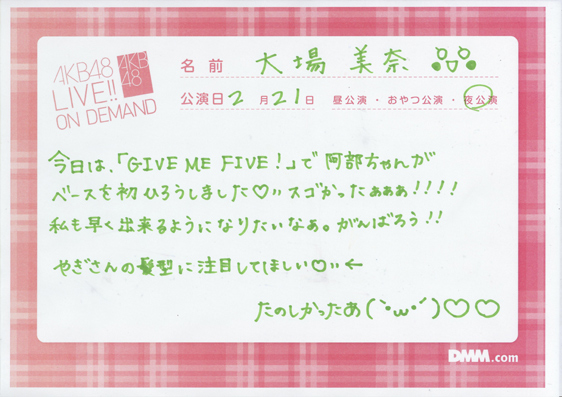 AKB48
LIVE!!
ON DEMAND
AKB
48
名前 大場 美奈
公演日 2月21日 昼公演・おやつ公演・夜公演
今日は、「GIVE ME FIVE!」で阿部ちゃんが
ベースを初ひろうしました♡〃スゴかったぁぁぁ!!!!
私も早く出来るようになりたいなぁ。がんばろう!!
やぎさんの髪型に注目してほしい♡〃←
たのしかったあ(`・ω・´)♡♡
DMM.com